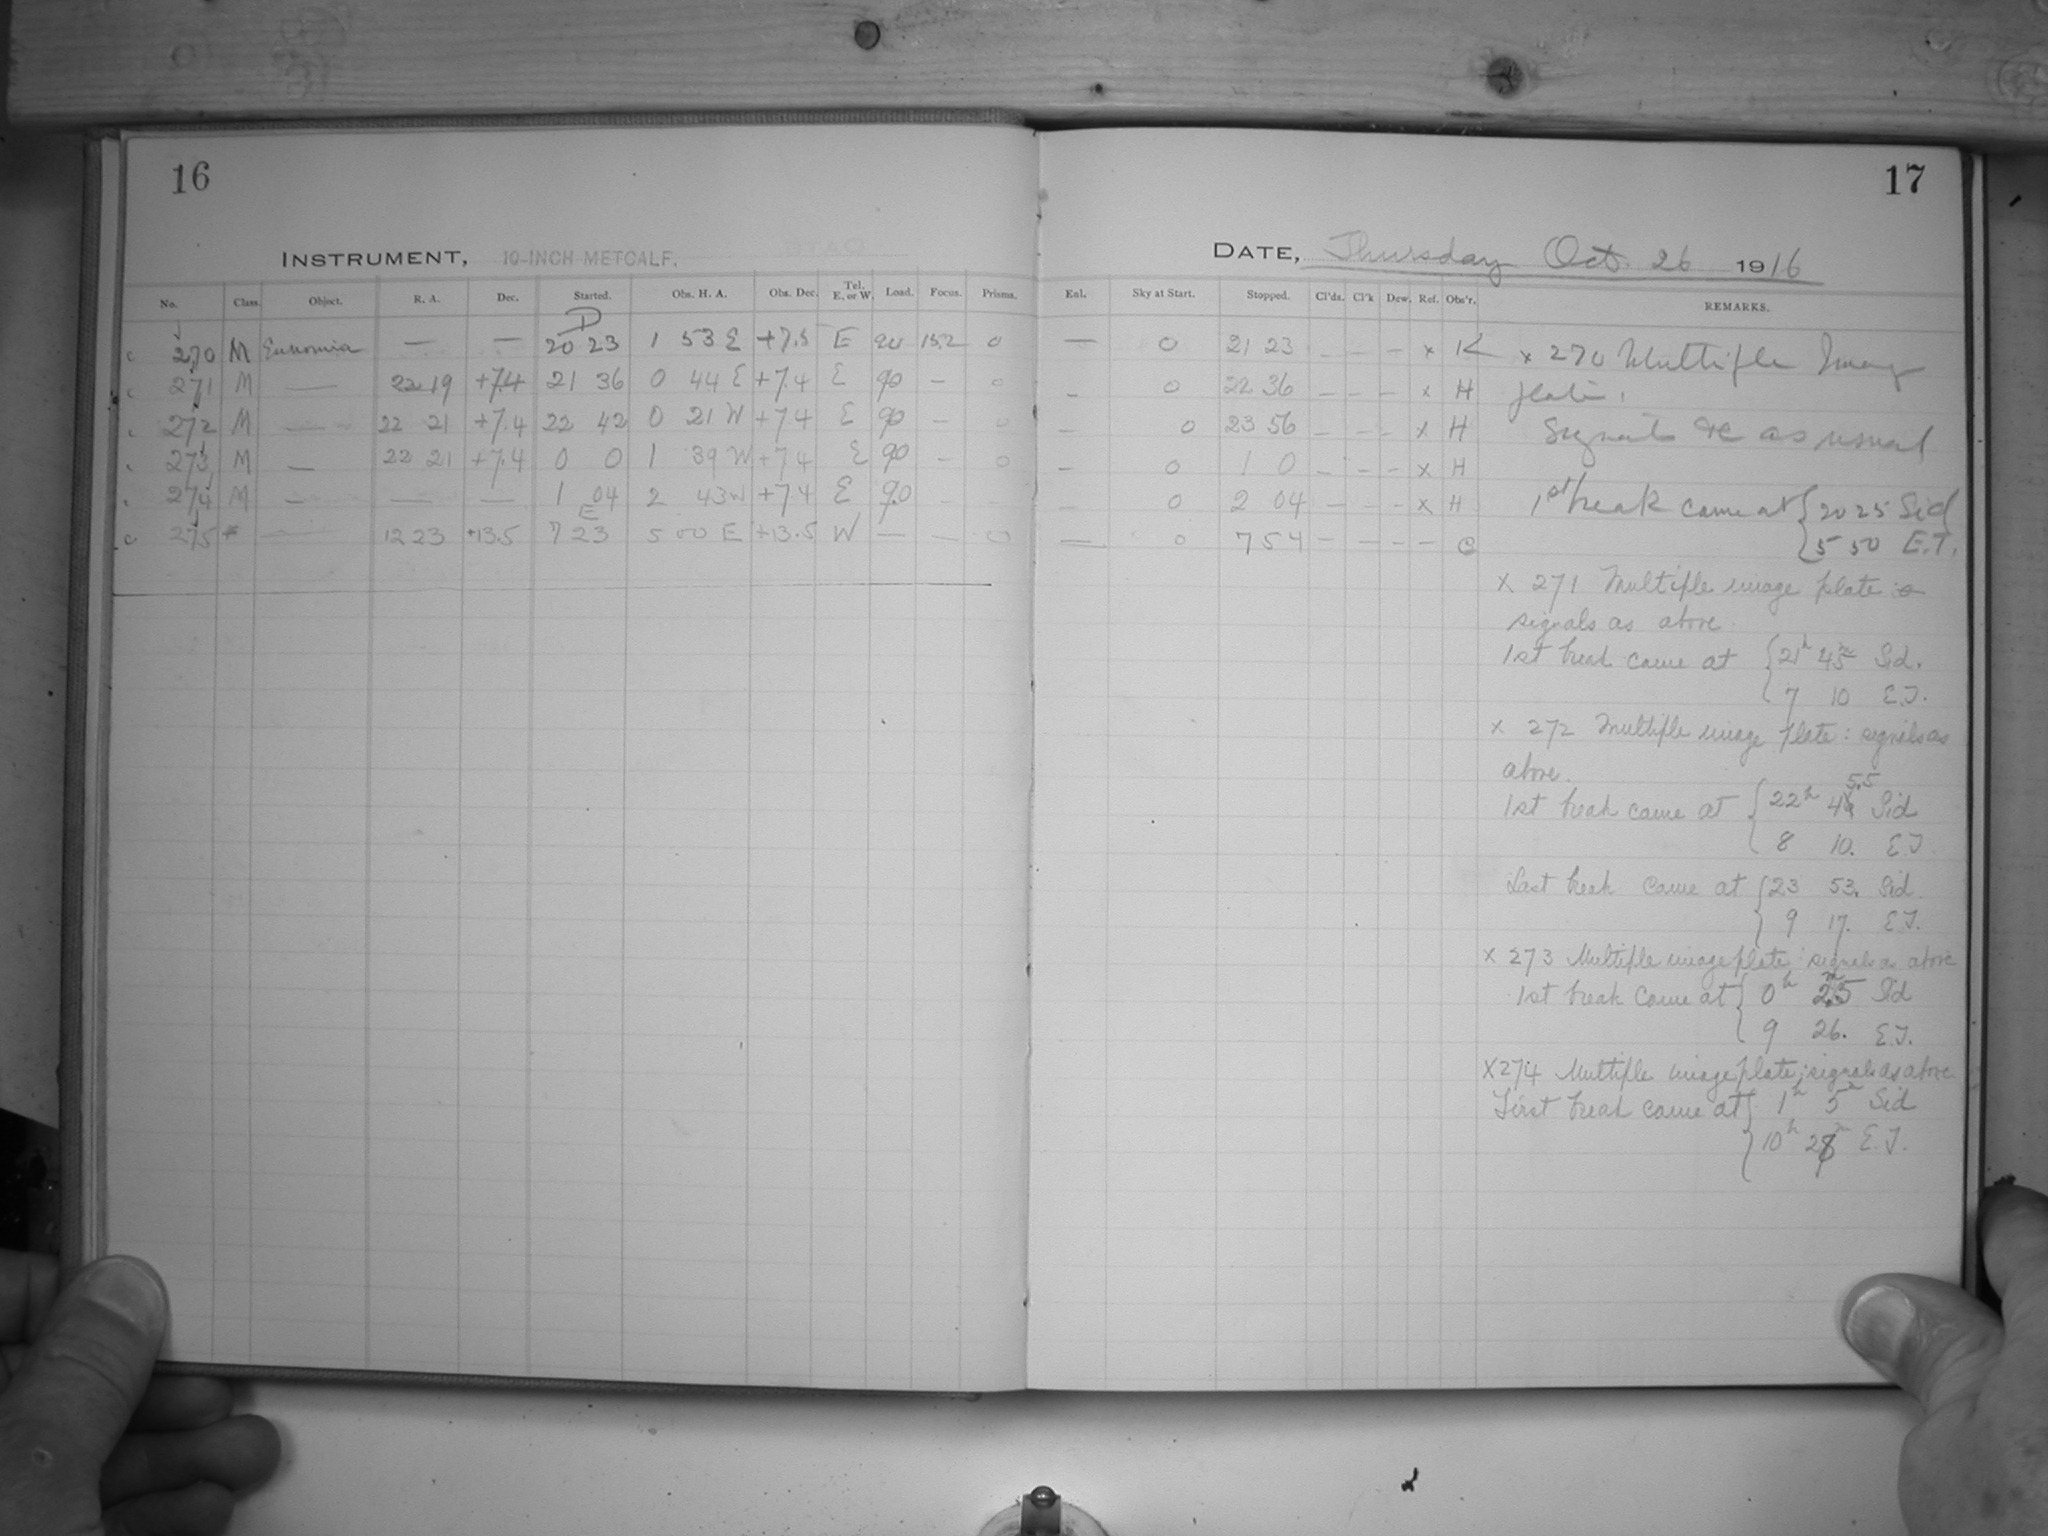 16
INSTRUMENT, 10-INCH METCALF.
No. Class. Object. R. A. Dec. Started. Obs. H. A. Obs. Dec. Tel. E. or W. Load. Focus. Prisms.
D
270 M Eunomia — — 20 23 1 53 E +7.5 E 90 15.2 0
271 M — 22 19 +7.4 21 36 0 44 E +7.4 E 90 – 0
272 M — 22 21 +7.4 22 42 0 21 W +7.4 E 90 – 0
273 M — 22 21 +7.4 0 0 1 39 W +7.4 E 90 – 0
274 M — — — 1 04 2 43 W +7.4 E 90 – –
E
275 — 12 23 +13.5 7 23 5 00 E +13.5 W — — 0
17
DATE, Thursday Oct. 26 1916
Enl. Sky at Start. Stopped. Cl'ds. Cl'k Dew. Ref. Obs'r. REMARKS.
— 0 21 23 – – – x K x 270 Multiple Image
– 0 22 36 – – – x H plate.
– 0 23 56 – – – x H Signals &c as usual
– 0 1 0 – – – x H
– 0 2 04 – – – x H 1st break came at { 20 25 Sid
— 0 7 54 – – – – C { 5 50 E.T.
x 271 Multiple image plate
signals as above.
1st break came at { 21h 45m Sid.
7 10 E.T.
x 272 Multiple image plate: signals as
above.
1st break came at { 22h Sid
8 10. E.T.
Last break came at { 23 53. Sid.
9 17. E.T.
x 273 Multiple image plate: signals as above
1st break came at { 0h Sid
9 26. E.T.
x 274 Multiple image plate; signals as above
First break came at { 1h 5m Sid
{ 10h E.T.